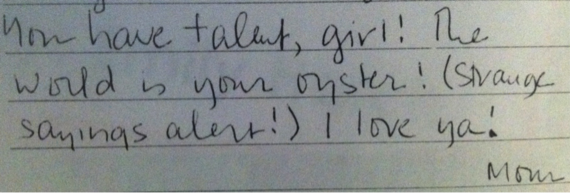 You have talent, girl! The
world is your oyster! (Strange
sayings alert!) I love ya!
Mom